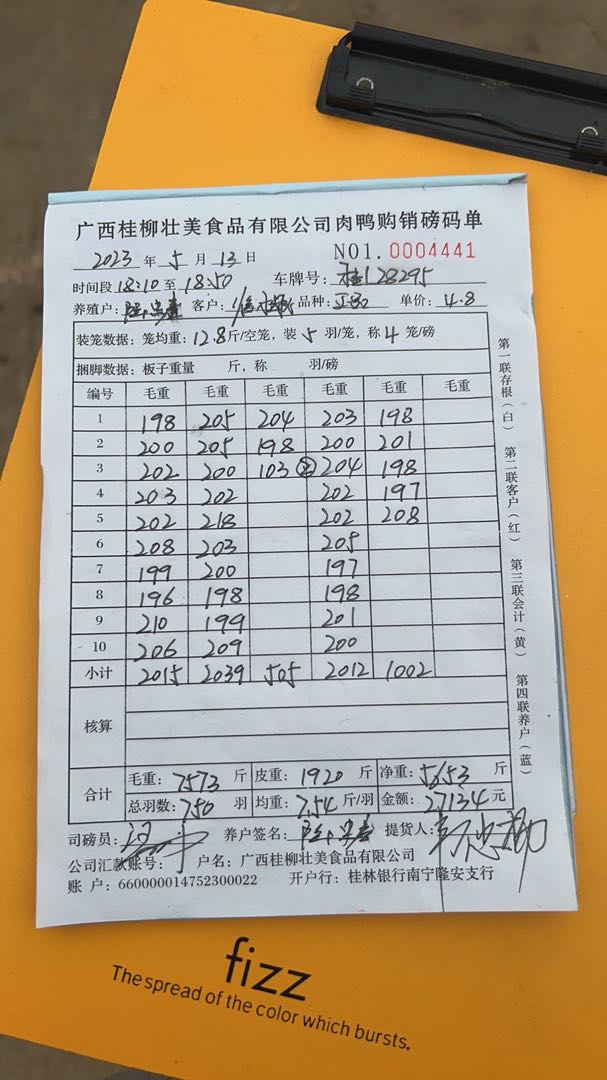 广西桂柳壮美食品有限公司肉鸭购销磅码单
2023 年 5 月 13 日 NO1. 0004441
时间段 18:10 至 18:50 车牌号: 桂128295
养殖户: 客户: 品种: 单价: 4.8
装笼数据: 笼均重: 12.8 斤/空笼, 装 5 羽/笼, 称 4 笼/磅
捆脚数据: 板子重量 斤, 称 羽/磅
编号 毛重 毛重 毛重 毛重 毛重 毛重
1 198 205 204 203 198
2 200 205 198 200 201
3 202 200 103 ② 204 198
4 203 202 202 197
5 202 218 202 208
6 208 203 205
7 199 200 197
8 196 198 198
9 210 199 201
10 206 209 200
小计 2015 2039 505 2012 1002
核算
合计 毛重: 7573 斤 皮重: 1920 斤 净重: 5653 斤
总羽数: 750 羽 均重: 7.54 斤/羽 金额: 27134 元
司磅员: 养户签名: 提货人:
公司汇款账号: 户名: 广西桂柳壮美食品有限公司
账 户: 660000014752300022 开户行: 桂林银行南宁隆安支行
第一联存根(白) 第二联客户(红) 第三联会计(黄) 第四联养户(蓝)
fizz
The spread of the color which bursts.